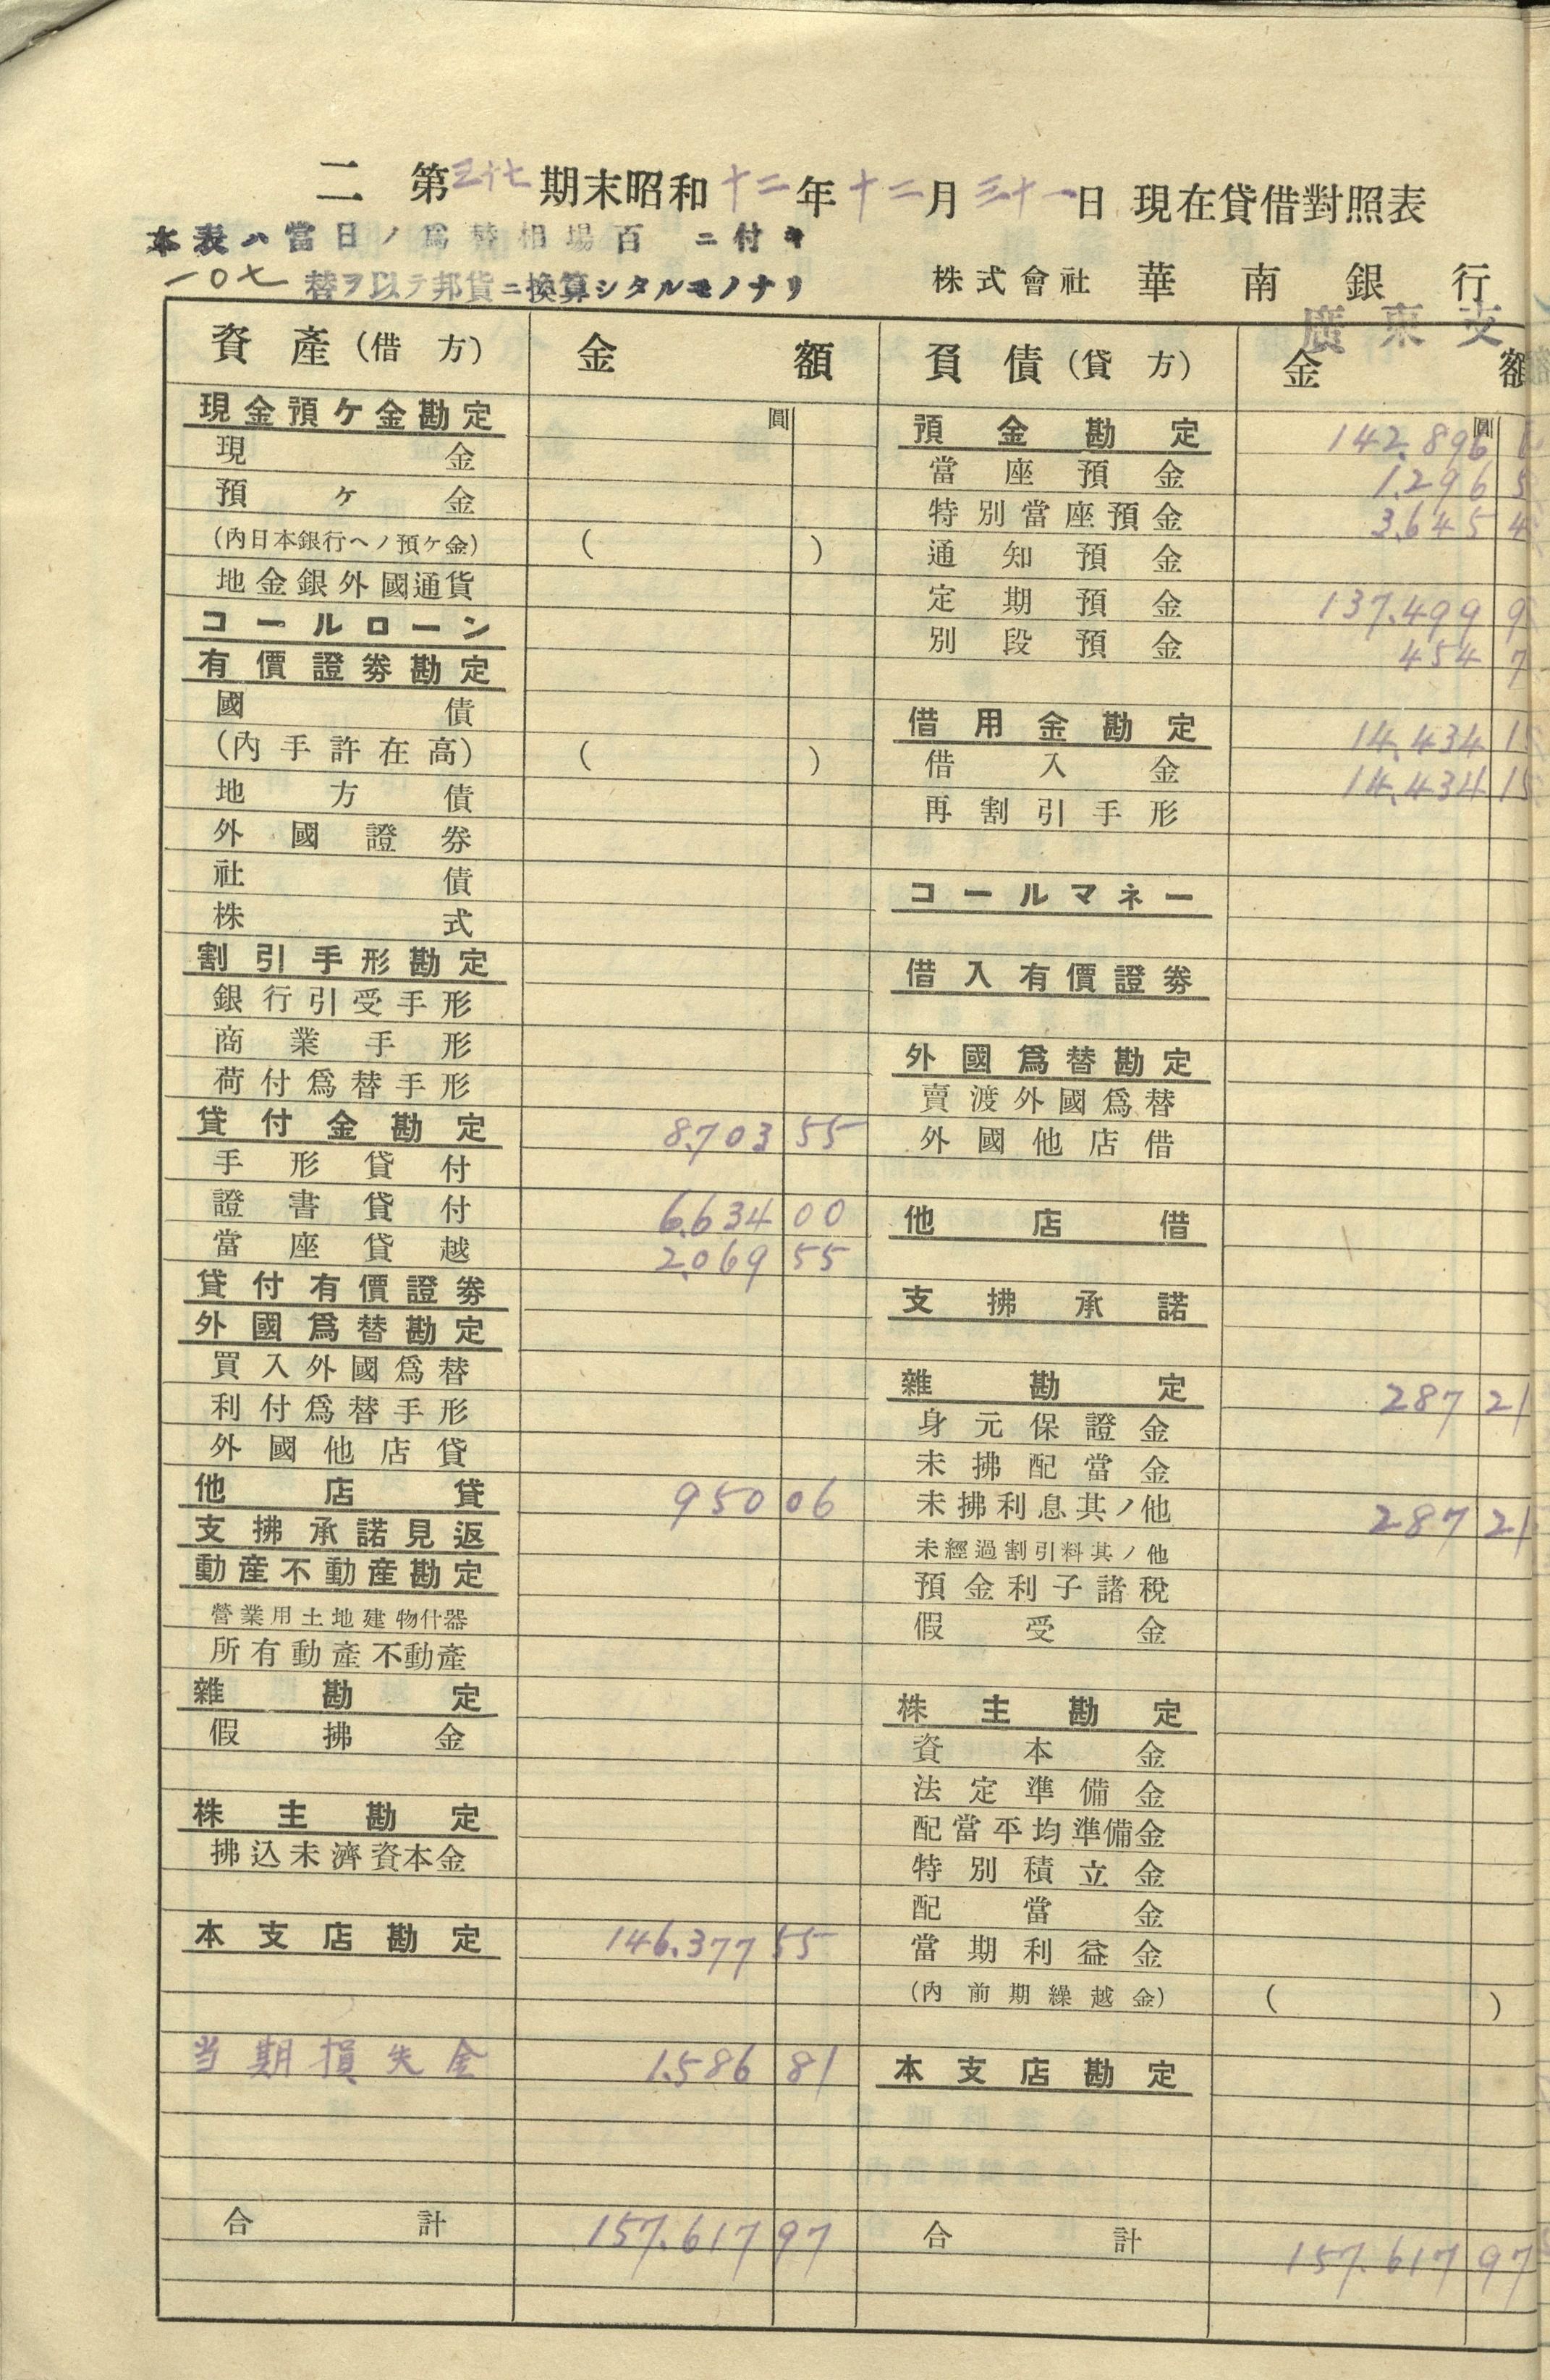 二 第三十七期末昭和十二年十二月三十一日 現在貸借對照表
本表ハ當日ノ爲替相場百 ニ付キ
一〇七 替ヲ以テ邦貨ニ換算シタルモノナリ
株式會社 華南銀行
廣東支
資產(借方) 金額
現金預ケ金勘定 圓
現金
預ケ金
(內日本銀行ヘノ預ケ金) ( )
地金銀外國通貨
コールローン
有價證劵勘定
國債
(內手許在高) ( )
地方債
外國證券
社債
株式
割引手形勘定
銀行引受手形
商業手形
荷付爲替手形
貸付金勘定 8.703 55
手形貸付
證書貸付 6.634 00
當座貸越 2.069 55
貸付有價證劵
外國爲替勘定
買入外國爲替
利付爲替手形
外國他店貸
他店貸 950 06
支拂承諾見返
動産不動産勘定
營業用土地建物什器
所有動產不動產
雜勘定
假拂金
株主勘定
拂込未濟資本金
本支店勘定 146.377 55
当期損失金 1.586 81
合計 157.617 97
負債(貸方) 金額
預金勘定 圓 142.896
當座預金 1.296
特別當座預金 3.645
通知預金
定期預金 137.499
別段預金 454
借用金勘定 14.434 15
借入金 14.434 15
再割引手形
コールマネー
借入有價證劵
外國爲替勘定
賣渡外國爲替
外國他店借
他店借
支拂承諾
雜勘定 287 21
身元保證金
未拂配當金
未拂利息其ノ他 287 21
未經過割引料其ノ他
預金利子諸稅
假受金
株主勘定
資本金
法定準備金
配當平均準備金
特別積立金
配當金
當期利益金
(內前期繰越金) ( )
本支店勘定
合計 157.617 97